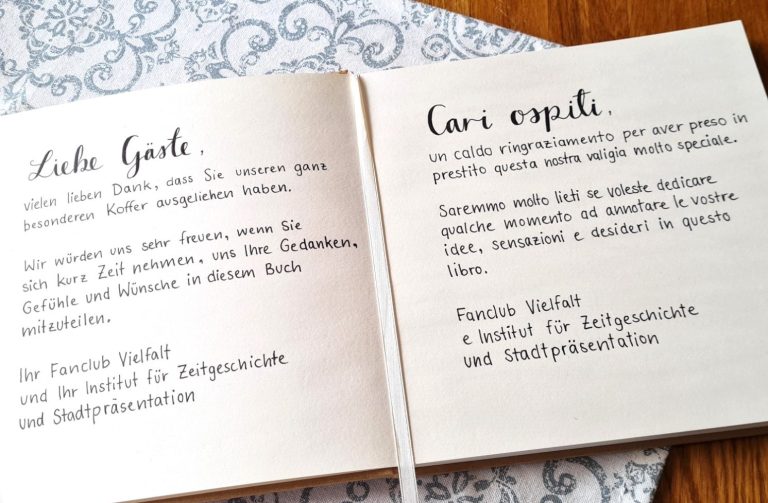 Liebe Gäste,
vielen lieben Dank, dass Sie unseren ganz
besonderen Koffer ausgeliehen haben.
Wir würden uns sehr freuen, wenn Sie
sich kurz Zeit nehmen, uns Ihre Gedanken,
Gefühle und Wünsche in diesem Buch
mitzuteilen.
Ihr Fanclub Vielfalt
und Ihr Institut für Zeitgeschichte
und Stadtpräsentation
Cari ospiti,
un caldo ringraziamento per aver preso in
prestito questa nostra valigia molto speciale.
Saremmo molto lieti se voleste dedicare
qualche momento ad annotare le vostre
idee, sensazioni e desideri in questo
libro.
Fanclub Vielfalt
e Institut für Zeitgeschichte
und Stadtpräsentation